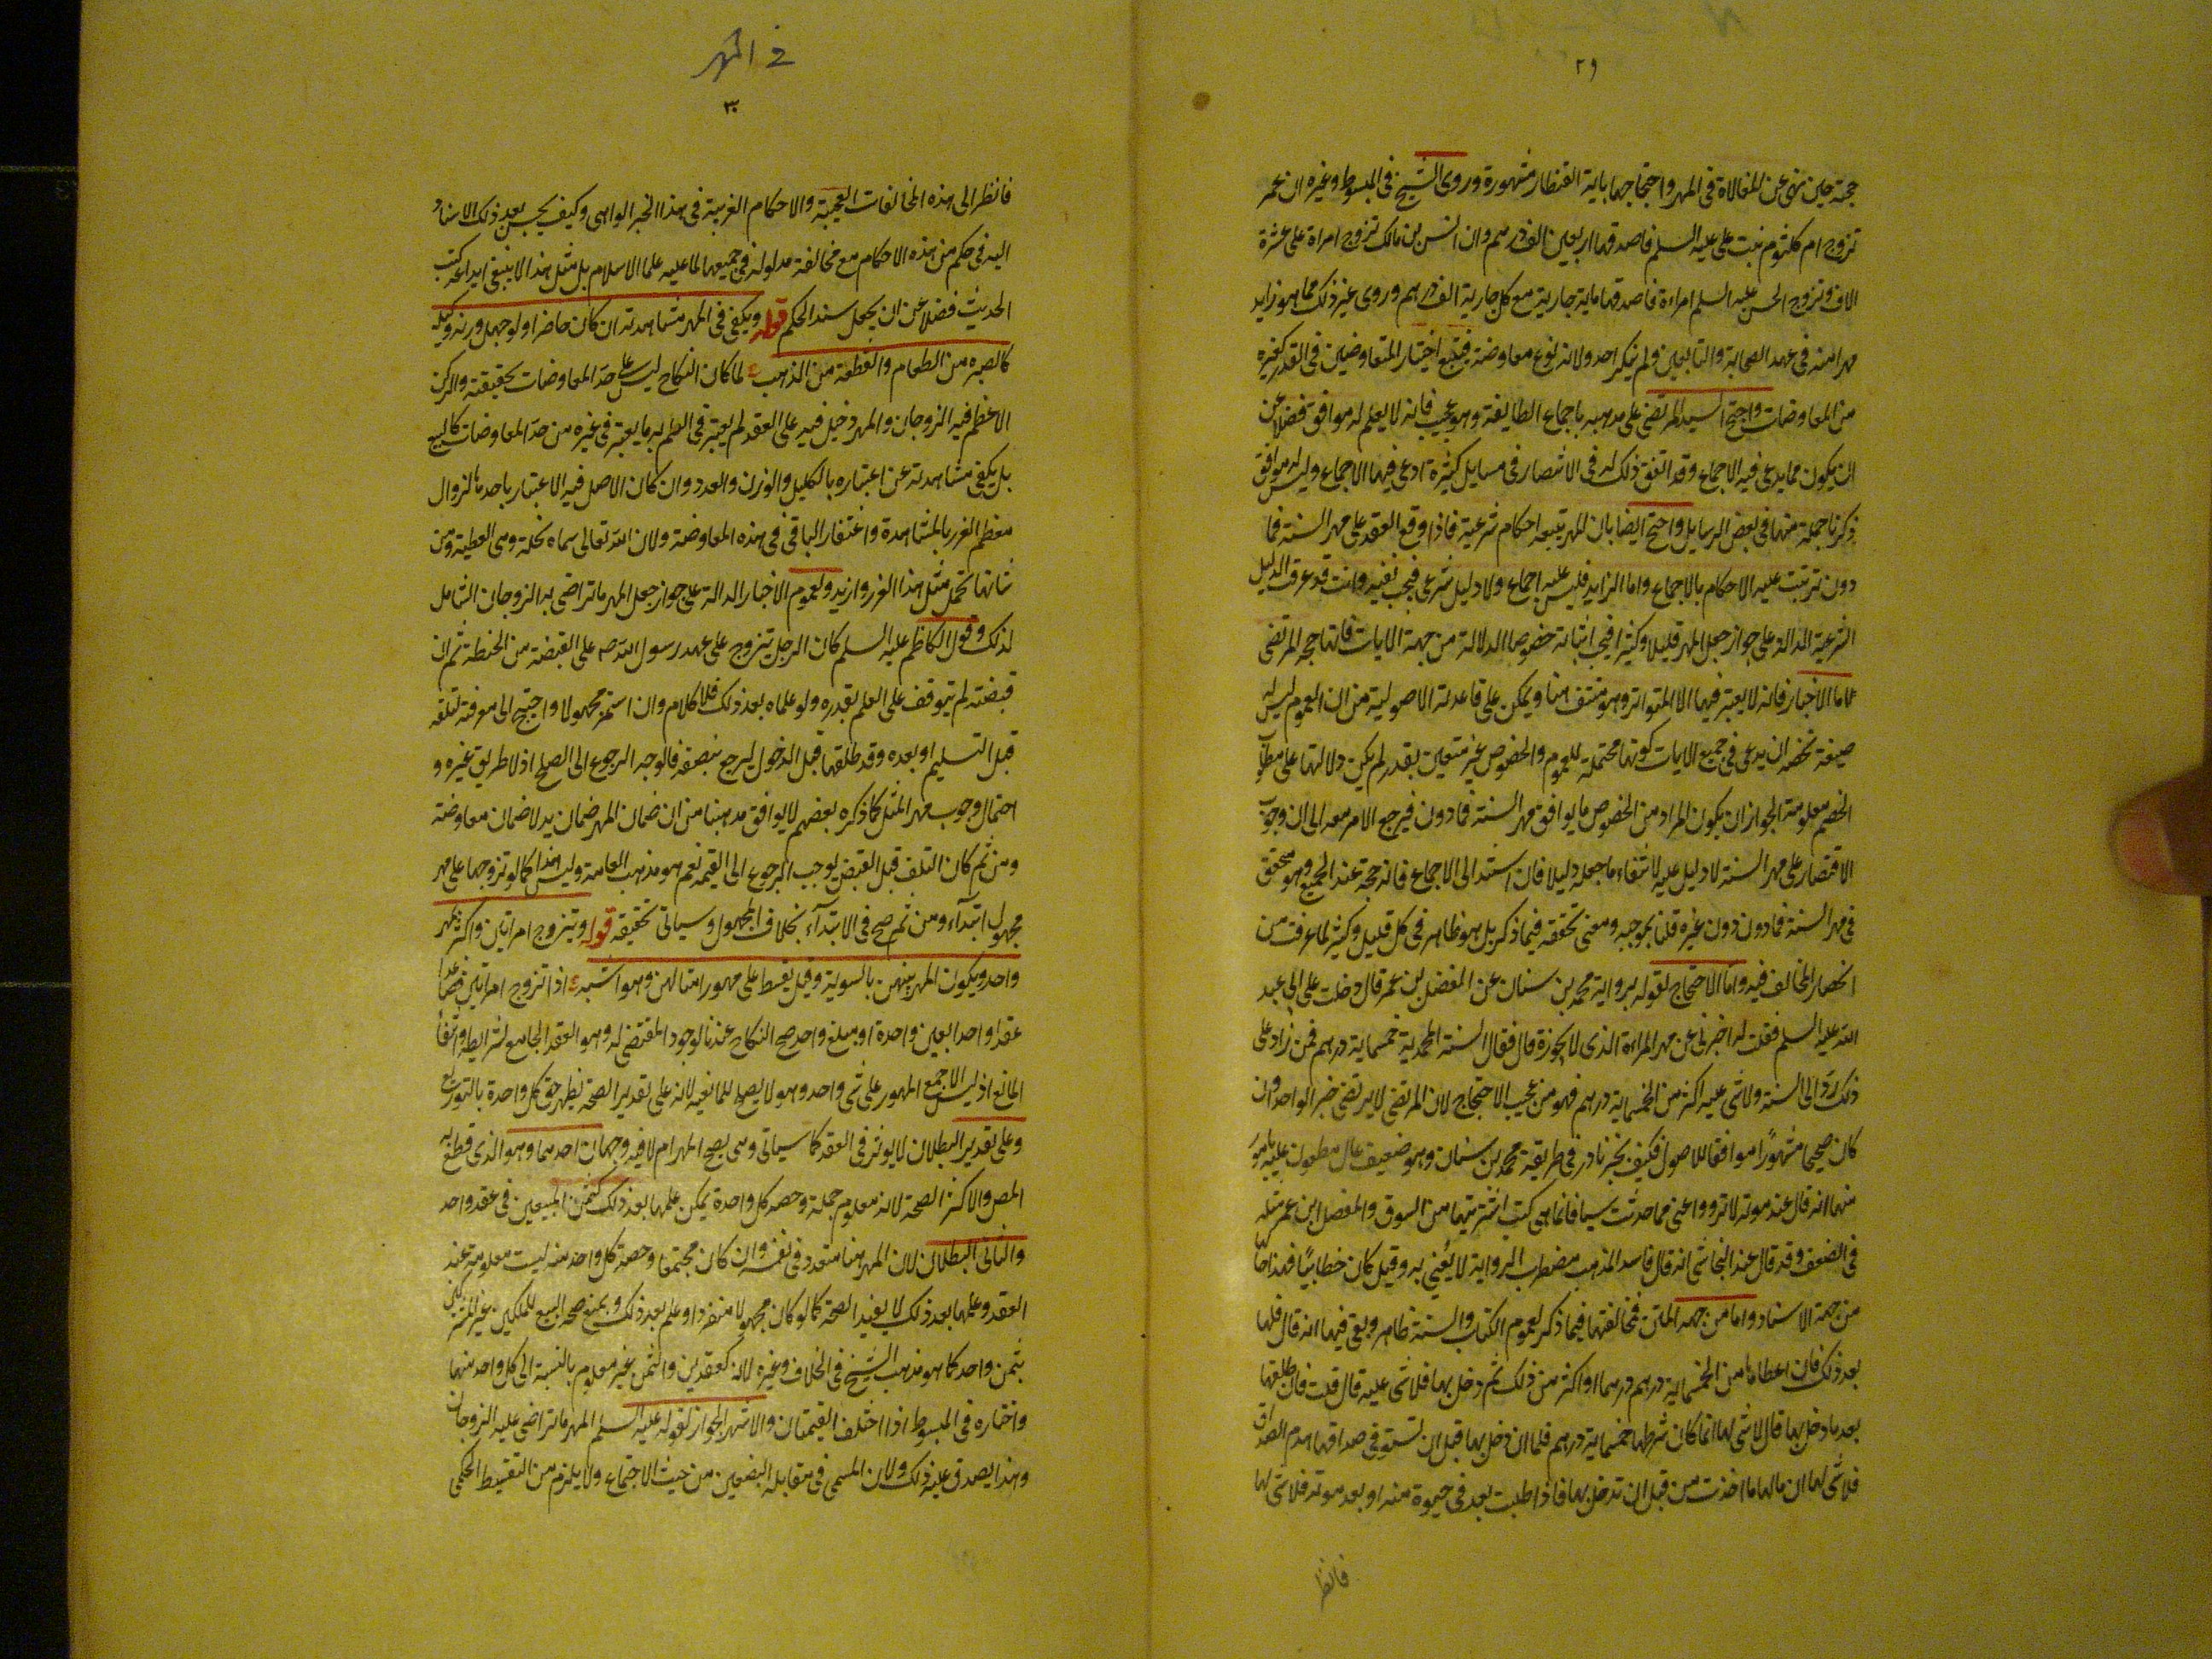 ٢٩
حجة حين نهى عن المغالاة في المهر واحتجاجها باية القنطار مشهورة وروى الشيخ في المبسوط وغيره ان عمر
تزوج ام كلثوم بنت علي عليه السلم فاصدقها اربعين الف درهم وان انس بن مالك تزوج امراة على عشرة
الاف وتزوج الحسن عليه السلم امراءة فاصدقها ماية جارية مع كل جارية الف درهم وروى غير ذلك مما هو زايد
مهر السنة في عهد الصحابة والتابعين ولم ينكر احد ولانه نوع معاوضة فيتبع اختيار المتعاوضين في القدر كغيره
من المعاوضات واحتج السيد المرتضى على مذهبه باجماع الطايفة وهو عجيب فانه لا يعلم له موافق فضلا عن
ان يكون مما يدعى فيه الاجماع وقد اتفق ذلك له في الانتصار في مسايل كثيرة ادعى فيها الاجماع وليس له موافق
ذكرنا جملة منها في بعض الرسايل واحتج ايضا بان المهر يتبعه احكام شرعية فاذا وقع العقد على مهر السنة فما
دون ترتبت عليه الاحكام بالاجماع واما الزايد فليس عليه اجماع ولا دليل شرعي فيجب نفيه وانت قد عرفت الدليل
الشرعية الدالة على جواز جعل المهر قليلا وكثيرا فيجب اثباته خصوصا الدلالة من جهة الايات فانها حجة المرتضى
اما الاخبار فانه لا يعتبر فيها الا المتواتر وهو منتف هنا ويمكن على قاعدته الاصولية من ان العموم ليس له
صيغة تخصه ان يدعى في جميع الايات كونها محتملة للعموم والخصوص غير متعين بقدر لم يكن دلالتها على مطلوب
الخصم معلومة لجواز ان يكون المراد من الخصوص ما يوافق مهر السنة فما دون فيرجع الامر معه الى ان وجوب
الاقتصار على مهر السنة لا دليل عليه لانتفاء ما جعله دليلا فان استند الى الاجماع فانه حجة عند الجميع وهو متحقق
في مهر السنة فما دون دون غيره قلنا بموجبه ومعنى تحققه فيما ذكر بل هو ظاهر في كل قليل وكثير لما عرفت من
انحصار المخالف فيه واما الاحتجاج لقوله برواية محمد بن سنان عن المفضل بن عمر قال دخلت على ابي عبد
الله عليه السلم فقلت له اخبرني عن مهر المراءة الذي لا يجوزه قال فقال السنة المحمدية خمسماية درهم فمن زاد على
ذلك رد الى السنة ولا شي عليه اكثر من الخمسماية درهم فهو من عجيب الاحتجاج لان المرتضى لا يرتضي خبر الواحد وان
كان صحيحا مشهورا موافقا للاصول فكيف بخبر نادر في طريقه محمد بن سنان وهو ضعيف غال مطعون عليه بامور
منها انه قال عند موته لا ترووا عني مما حدثت شيا فانما هي كتب اشتريتها من السوق والمفضل ابن عمر مثله
في الضعف وقد قال عند النجاشي انه قال فاسد المذهب مضطرب الرواية لا يعني به وقيل كان خطابيا فهذا ما
من جهة الاسناد واما من جهة المتن فمخالفتها فيما ذكر لعموم الكتاب والسنة ظاهر وبقي فيها انه قال فيها
بعد ذلك فان اعطاها من الخمسماية درهم درهما او اكثر من ذلك ثم دخل بها فلا شي عليه قال قلت فان طلقها
بعد ما دخل بها قال لا شي لها انما كان شرطها خمسماية درهم فلما ان دخل بها قبل ان تستوفي صداقها هدم الصداق
فلا شي لها ان مالها ما اخذت من قبل ان تدخل بها فاذا طلبت بعد في حيوة منه او بعد موته فلا شي لها
فانظر
في المهر
٣٠
فانظر الى هذه المخالفات العجيبة والاحكام الغريبة في هذا الخبر الواهي وكيف يحسن بعد ذلك الاسناد
اليه في حكم من هذه الاحكام مع مخالفة مدلوله في جميعها لما عليه علما الاسلام بل مثل هذا لا ينبغي ايداعه كتب
الحديث فضلا عن ان يجعل سند الحكم قوله ويكفي في المهر مشاهدته ان كان حاضرا ولو جهل وزنه وكيله
كالصبره من الطعام والقطعة من الذهب لما كان النكاح ليس على حد المعاوضات بحقيقته والركن
الاعظم فيه الزوجان والمهر دخيل فيه على العقد لم يعتبر في العلم به ما يعتبر في غيره من حد المعاوضات كالبيع
بل يكفي مشاهدته عن اعتباره بالكيل والوزن والعدد وان كان الاصل فيه الاعتبار باحدها لزوال
معظم الغرر بالمشاهدة واغتفار الباقي في هذه المعاوضة ولان الله تعالى سماه نحلة وهي العطية ومن
شانها تحمل مثل هذا الغرر وازيد ولعموم الاخبار الدالة على جواز جعل المهر ما تراضى به الزوجان الشامل
لذلك وقول الكاظم عليه السلم كان الرجل يتزوج على عهد رسول الله صم على القبضة من الحنطة ثم ان
قبضته لم يتوقف على العلم بقدره ولو علماه بعد ذلك فلا كلام وان استمر مجهولا واحتيج الى معرفته لتلفه
قبل التسليم او بعده وقد طلقها قبل الدخول ليرجع بنصفه فالوجه الرجوع الى الصلح اذ لا طريق غيره و
احتمال وجوب مهر المثل كما ذكره بعضهم لا يوافق مذهبنا من ان ضمان المهر ضمان يد لا ضمان معاوضة
ومن ثم كان التلف قبل القبض يوجب الرجوع الى القيمة نعم هو مذهب العامة وليس هذا كما لو تزوجها على مهر
مجهول ابتداء ومن ثم صح في الابتداء بخلاف المجهول وسياتي تحقيقه قوله ويتزوج امراتين واكثر بمهر
واحد ويكون المهر بينهن بالسوية وقيل يقسط على مهور امثالهن وهو اشبه اذا تزوج امراتين فصاعدا
عقدا واحدا بعين واحدة او بمبلغ واحد صح النكاح عندنا لوجود المقتضي له وهو العقد الجامع لشرايطه وانتفاء
المانع اذ ليس الا جمع المهور على شي واحد وهو لا يصلح للمانعية لانه على تقدير الصحة يظهر حق كل واحدة بالتوزيع
وعلى تقدير البطلان لا يوثر في العقد كما سياتي وهي يصح المهر ام لا فيه وجهان احدهما وهو الذي قطع به
المص والاكثر الصحة لانه معلوم جملة وحصة كل واحدة يمكن علمها بعد ذلك كثمن المبيعين في عقد واحد
والثاني البطلان لان المهر هنا متعدد في نفسه وان كان مجتمعا وحصة كل واحد منه ليست معلومة عند
العقد وعلمها بعد ذلك لا يفيد الصحة كما لو كان مجهولا منفردا وعلم بعد ذلك ويمنع صحة البيع للملكين غير المشتركين
بثمن واحد كما هو مذهب الشيخ في الخلاف وغيره لانه كعقدين والثمن غير معلوم بالنسبة الى كل واحد منهما
واختاره في المبسوط اذا اختلف القيمتان والاشهر الجواز لقوله عليه السلم المهر ما تراضى عليه الزوجان
وهذا يصدق عليه ذلك ولان المسمى في مقابلة البضعين من حيث الاجتماع ولا يلزم من التقسيط الحكمي